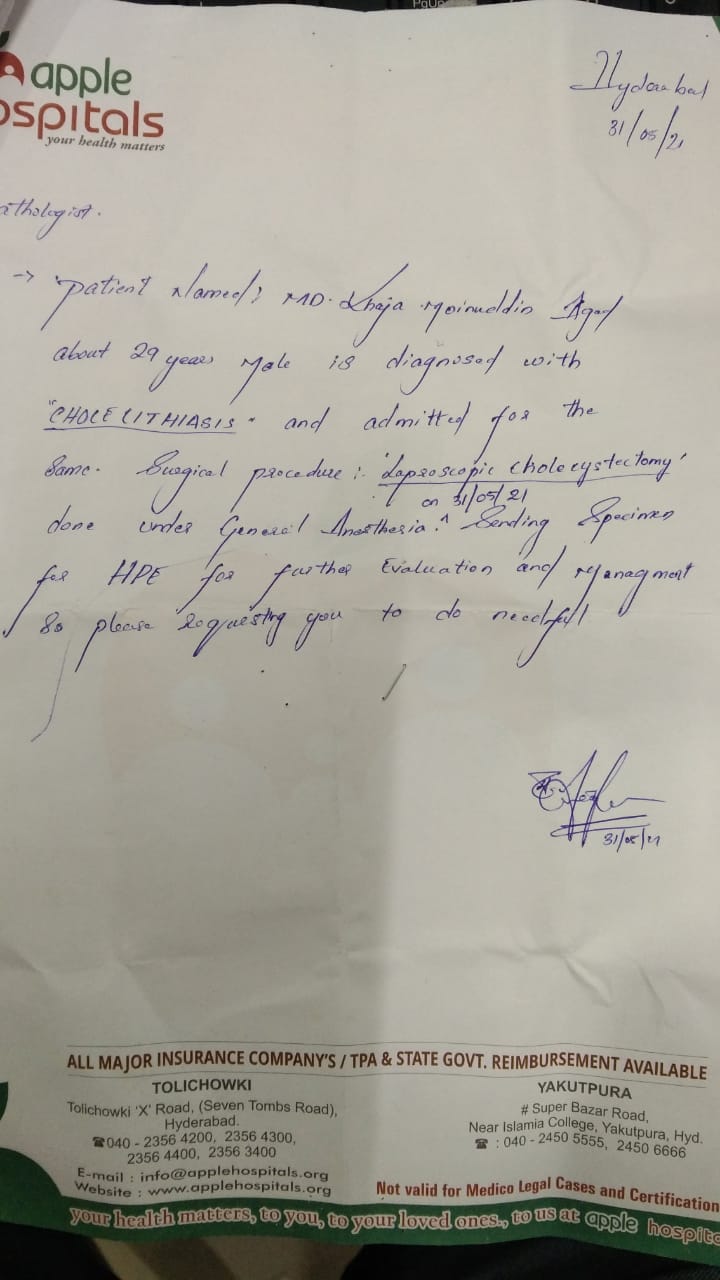 PgUp
apple
ospitals
your health matters
Hyderabad
31/05/21
athologist.
→ patient Named; MD. Khaja Moinueddin Aged
about 29 years Male is diagnosed with
"CHOLELITHIASIS" and admitted for the
Same. Surgical procedure :- 'Laproscopic Cholecystectomy'
on 31/05/21
done under General Anesthesia.^ Sending Specimen
for HPE for further Evaluation and Managment
So please requesting you to do needful
31/05/21
ALL MAJOR INSURANCE COMPANY'S / TPA & STATE GOVT. REIMBURSEMENT AVAILABLE
TOLICHOWKI
Tolichowki 'X' Road, (Seven Tombs Road),
Hyderabad.
☎040 - 2356 4200, 2356 4300,
2356 4400, 2356 3400
E-mail : info@applehospitals.org
Website : www.applehospitals.org
YAKUTPURA
# Super Bazar Road,
Near Islamia College, Yakutpura, Hyd.
☎ : 040 - 2450 5555, 2450 6666
Not valid for Medico Legal Cases and Certification
your health matters, to you, to your loved ones., to us at apple hospita